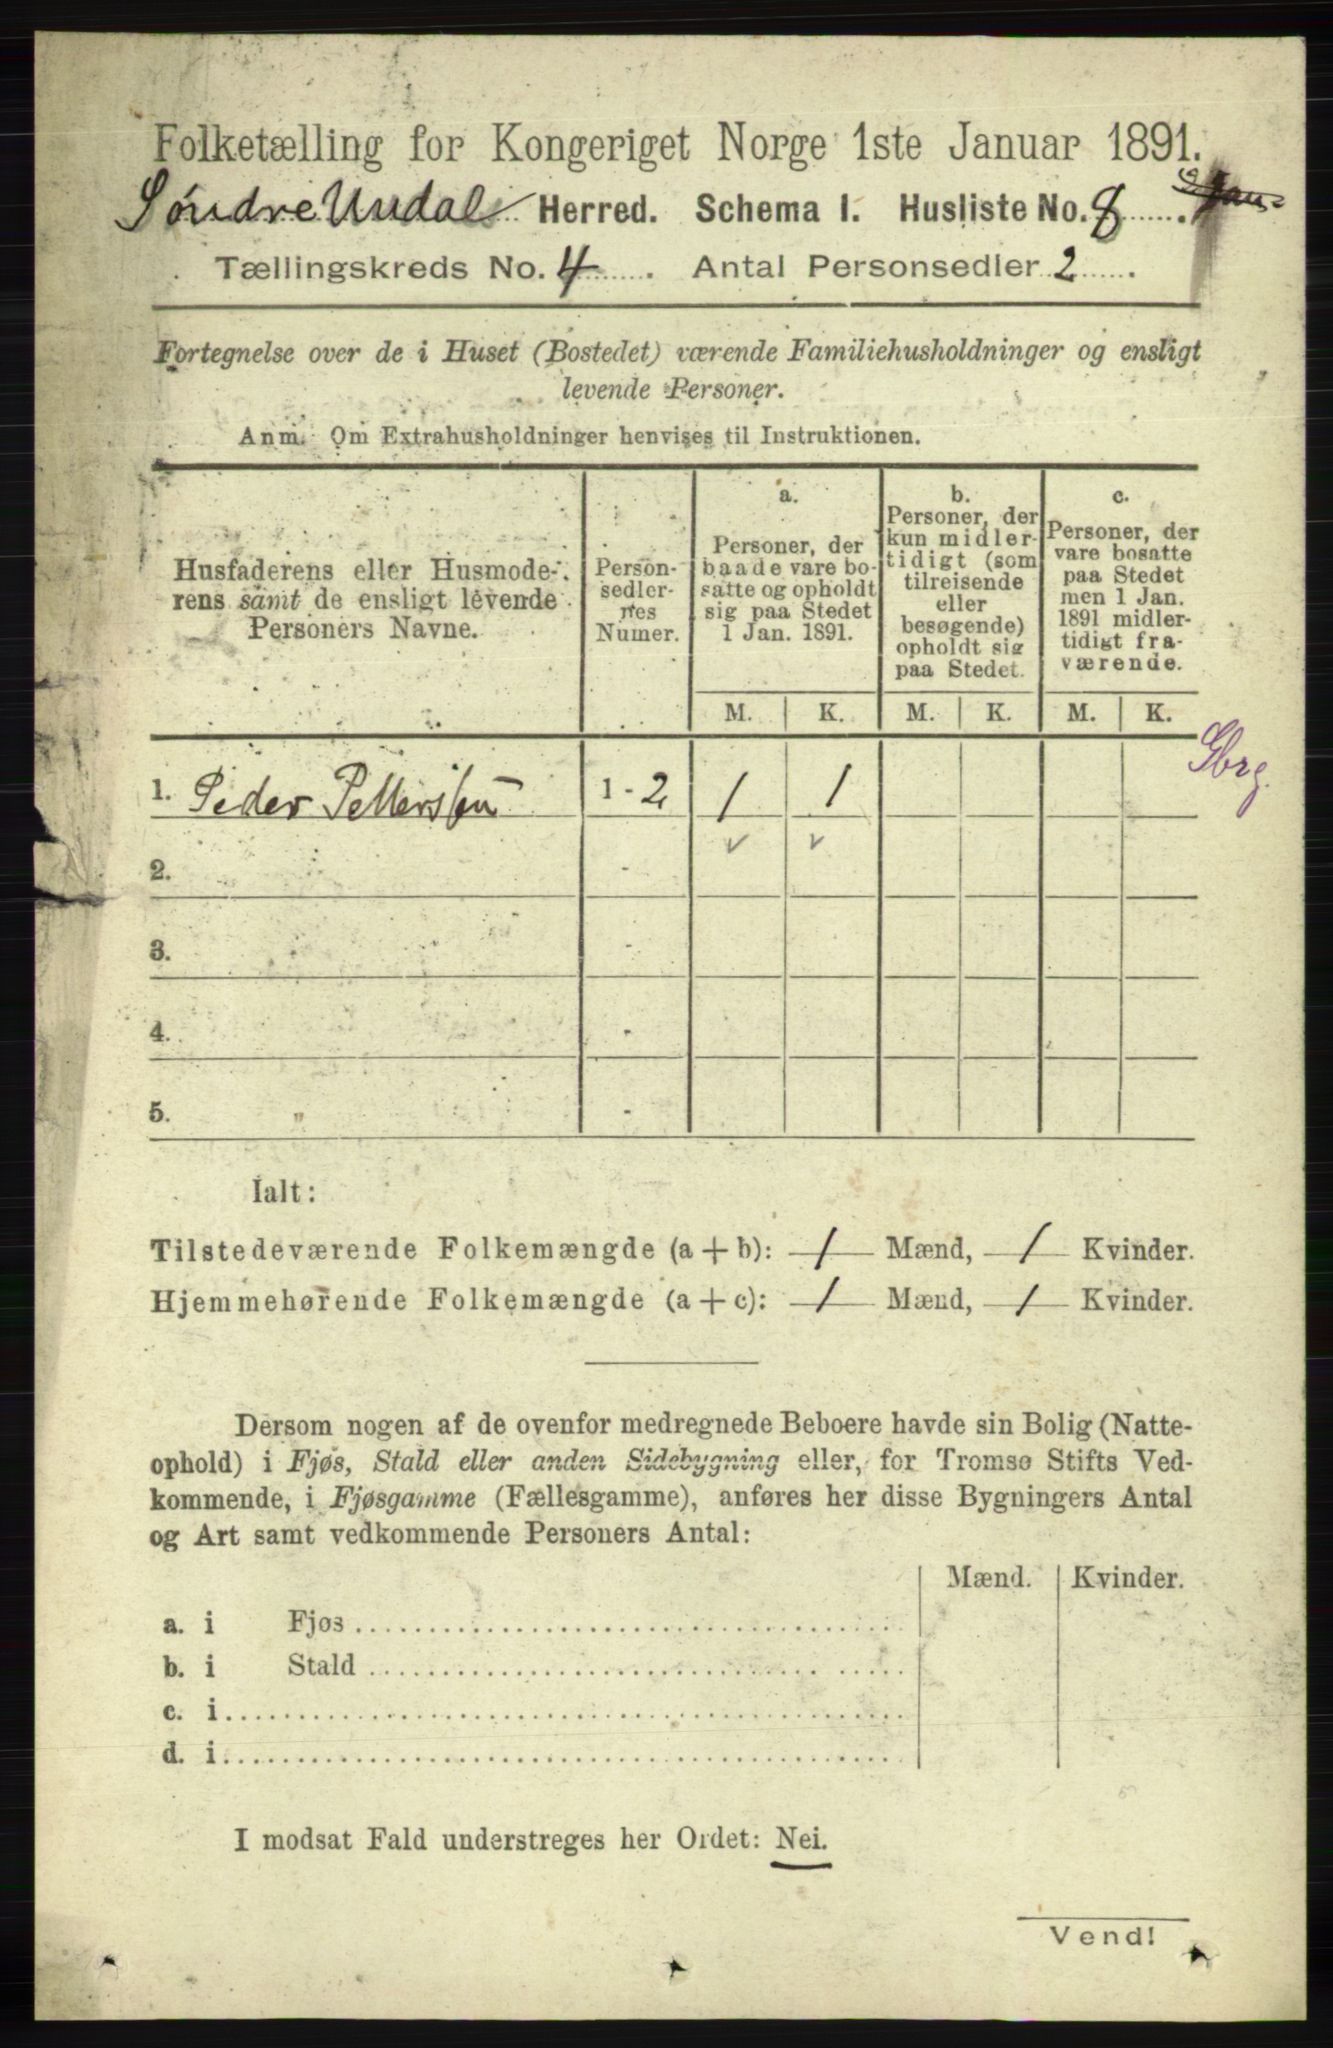 Folketælling for Kongeriget Norge 1ste Januar 1891.
Søndre Undal Herred. Schema I. Husliste No. 8.
Tællingskreds No. 4. Antal Personsedler 2.
Fortegnelse over de i Huset (Bostedet) værende Familiehusholdninger og ensligt
levende Personer.
Anm. Om Extrahusholdninger henvises til Instruktionen.
Husfaderens eller Husmode-
rens samt de ensligt levende
Personers Navne.
Person-
sedler-
nes
Numer.
a.
Personer, der
baade vare bo-
satte og opholdt
sig paa Stedet
1 Jan. 1891.
b.
Personer, der
kun midler-
tidigt (som
tilreisende
eller
besøgende)
opholdt sig
paa Stedet.
c.
Personer, der
vare bosatte
paa Stedet
men 1 Jan.
1891 midler-
tidigt fra-
værende.
M. K. M. K. M. K.
Gbrg.
1. Peder Pettersen 1 - 2 1 1
2. - v v
3. -
4. -
5. „ -
Ialt:
Tilstedeværende Folkemængde (a + b): 1 Mænd, 1 Kvinder.
Hjemmehørende Folkemængde (a + c): 1 Mænd, 1 Kvinder.
Dersom nogen af de ovenfor medregnede Beboere havde sin Bolig (Natte-
ophold) i Fjøs, Stald eller anden Sidebygning eller, for Tromsø Stifts Ved-
kommende, i Fjøsgamme (Fællesgamme), anføres her disse Bygningers Antal
og Art samt vedkommende Personers Antal:
Mænd. Kvinder.
a. i Fjøs
b. i Stald
c. i
d. i
I modsat Fald understreges her Ordet: Nei.
Vend!